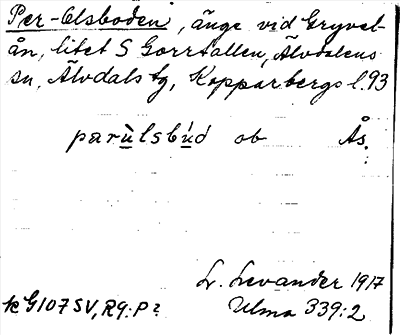 Per-Olsboden, änge vid Gryvel-
ån, litet S Gorrtallen, Älvdalens
sn, Älvdals tg, Kopparbergs l. 93
parùlsbúd ob Ås.
L. Levander 1917
k G107SV, R9: P?
Ulma 339:2